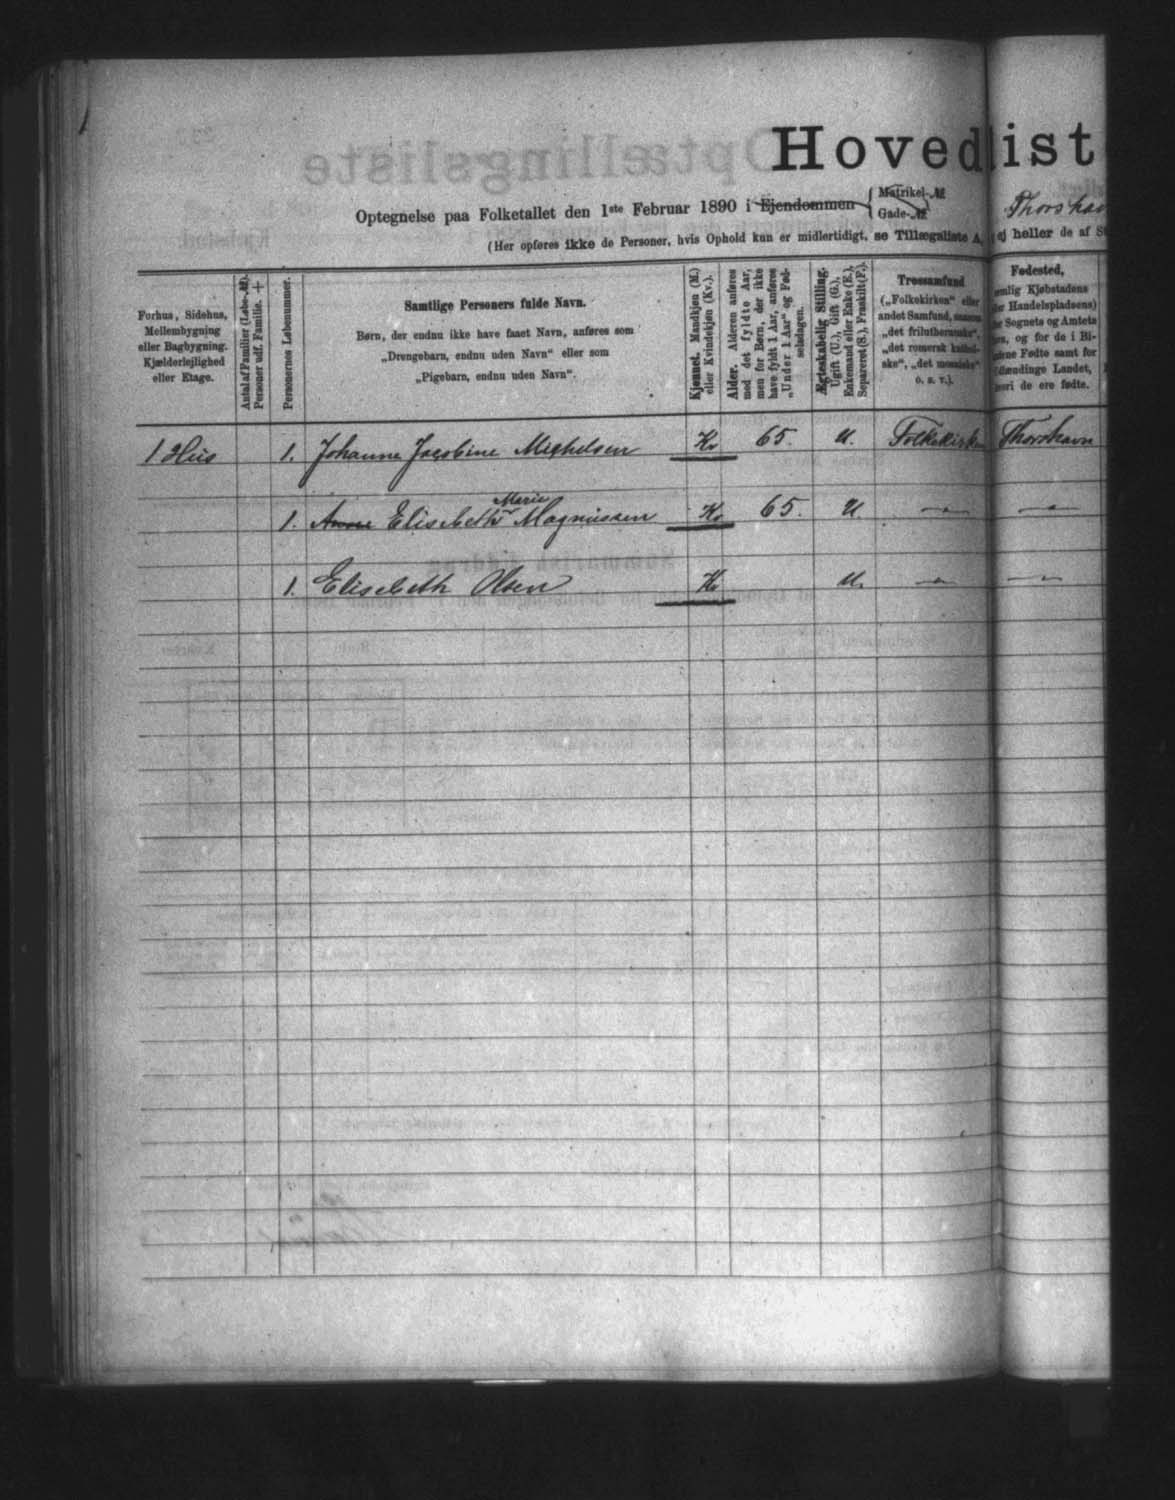 Hovedlist
Optegnelse paa Folketallet den 1ste Februar 1890 i Ejendommen { Matrikel-№ Gade-№ Thorshav
(Her opføres ikke de Personer, hvis Ophold kun er midlertidigt, se Tillægsliste A, ej heller de af S
Forhus, Sidehus, Mellembygning eller Bagbygning. Kjælderlejlighed eller Etage.
Antal af Familier (Løbe-№). Personer udf. Familie. +
Personernes Løbenummer.
Samtlige Personers fulde Navn.
Børn, der endnu ikke have faaet Navn, anføres som
„Drengebarn, endnu uden Navn“ eller som
„Pigebarn, endnu uden Navn“.
Kjønnet. Mandkjøn (M.) eller Kvindekjøn (Kv.).
Alder. Alderen anføres med det fyldte Aar, men for Børn, der ikke have fyldt 1 Aar, anføres „Under 1 Aar“ og Fødselsdagen.
Ægteskabelig Stilling. Ugift (U.), Gift (G.), Enkemand eller Enke (E.), Separeret (S.), Fraskilt (F.).
Trossamfund („Folkekirken“ eller andet Samfund, saasom „det frilutherske“, „det romersk katholske“, „det mosaiske“ o. s. v.).
Fødested,
mlig Kjøbstadens
Handelspladsens)
Sognets og Amtets
n, og for de i Bi-
dene Fødte samt for
dlændinge Landet,
vori de ere fødte.
1 Hus 1. Johanne Jacobine Michelsen Kv 65. U. Folkekirken Thorshavn
Marie
1. Anne Elisabeth Magnussen Kv 65. U. — " — — " —
1. Elisabeth Olsen Kv U. — " — — " —